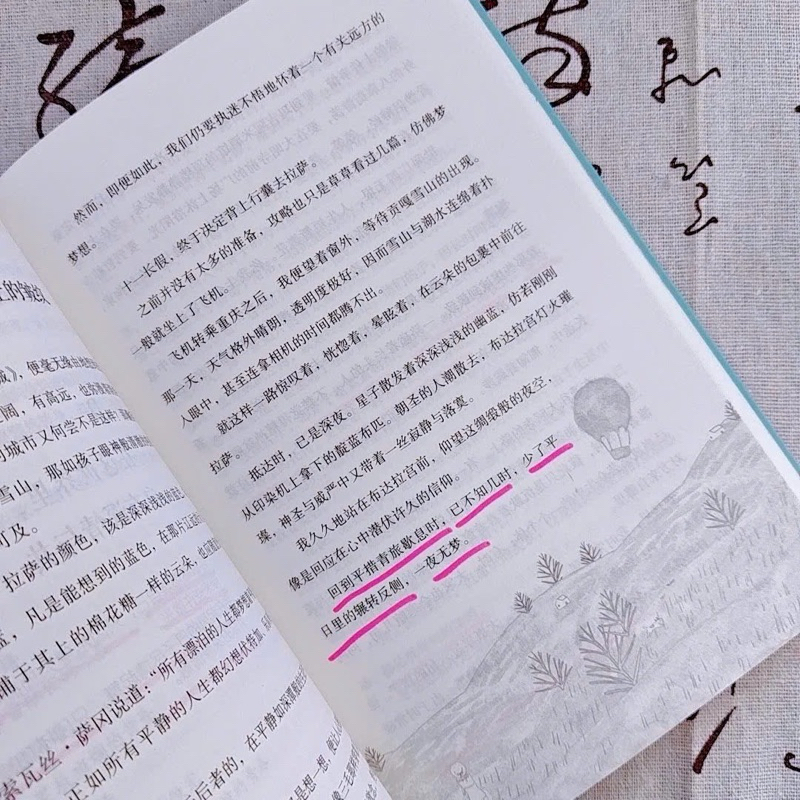 》，便毫无缘由地
阔，有高远，也
的城市又何尝不是这样，
雪山，那如孩子眼神般清澈的
可及。
拉萨的颜色，该是深深浅浅的
蓝，凡是能想到的蓝色，在那片
铺于其上的棉花糖一样的云朵，
索瓦丝·萨冈说道：“所有漂泊的人生都梦想
正如所有平静的人生都幻想伏特加
后者的，在平静如深潭般的
是想一想，
然而，即便如此，我们仍要执迷不悟地怀着一个有关远方的
梦想。
十一长假，终于决定背上行囊去拉萨。
之前并没有太多的准备，攻略也只是草草看过几篇，仿佛梦
一般就坐上了飞机。
飞机转乘重庆之后，我便望着窗外，等待贡嘎雪山的出现。
那一天，天气格外晴朗，透明度极好，因而雪山与湖水连绵着扑
人眼中，甚至连拿相机的时间都腾不出。
就这样一路惊叹着，恍惚着，晕眩着，在云朵的包裹中前往
拉萨。
抵达时，已是深夜。星子散发着深深浅浅的幽蓝，仿若刚刚
从印染机上拿下的靛蓝布匹。朝圣的人潮散去，布达拉宫灯火璀
璨，神圣与威严中又带着一丝寂静与落寞。
我久久地站在布达拉宫前，仰望这绸缎般的夜空，
像是回应在心中潜伏许久的信仰。
回到平措青旅歇息时，已不知几时，少了平
日里的辗转反侧，一夜无梦。